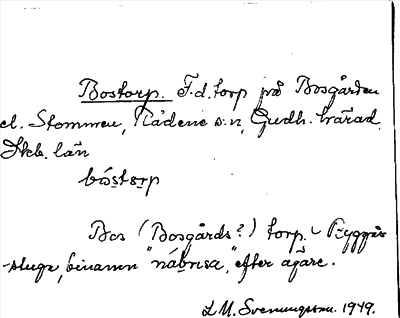 Bostorp. F.d. torp på Bosgården
el. Stommen, Rådene s:n, Gudh. härad,
Skb. län
bóstorp
Bos (Bosgårds?) torp. Ryggås-
stuga, binamn "nábrisa", efter ägare.
L M. Svenungsson. 1949.